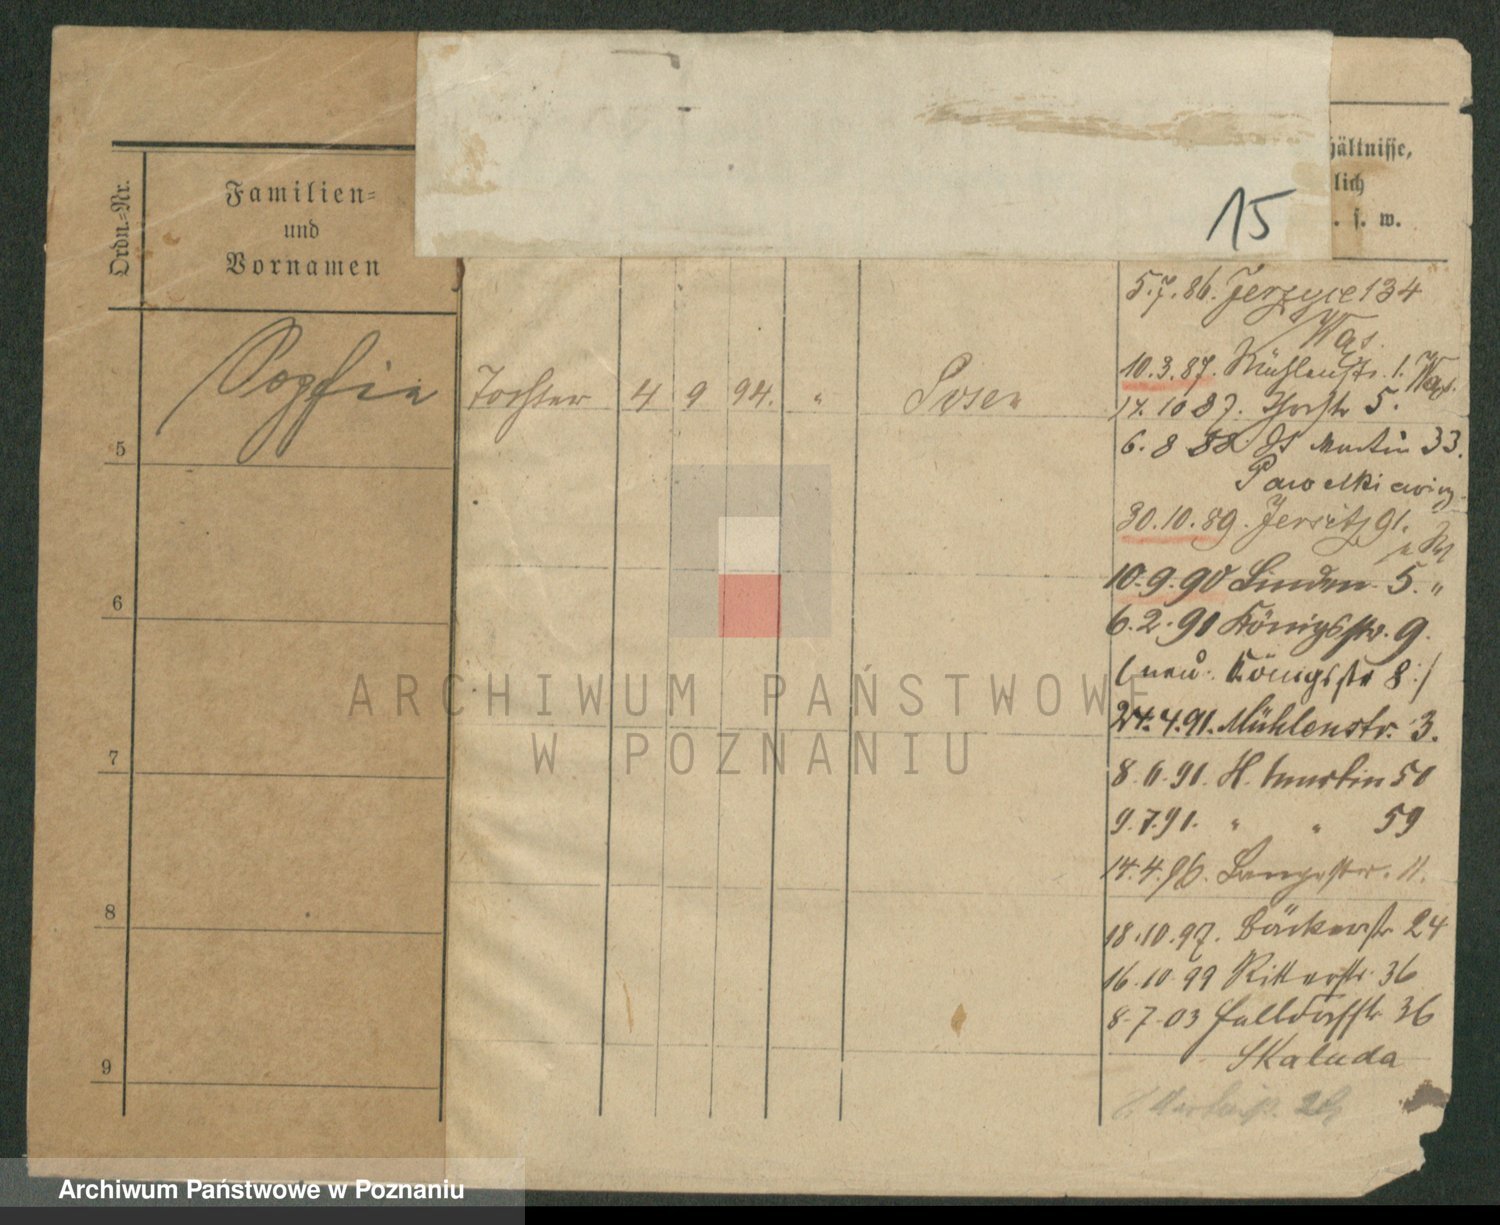 15
Ordn.-Nr.
Familien-
und
Vornamen
hältnisse,
lich
. s. w.
5.7.86. Jerzyce 134
Was.
10.3.87. Mühlenstr. 1. Was.
Sophie
Tochter 4 9 94. " Posen
14.10 87. 5.
5
6.8 88 St Martin 33.
30.10.89. Jersitz 91.
10.9.90 Linden 5. "
6
6.2.91 Königsstr. 9.
(neu: Königsstr 8:/
24.4.91. Mühlenstr. 3.
7
8.6.91. St. Martin 50
9.7.91. " " 59
14.4.96. Langestr. 11.
8
18.10.97. Bäckerstr 24
16.10.99 Ritterstr. 36
8-7-03 Halldorfstr 36
Skaluda
9
ARCHIWUM PAŃSTWOWE
W POZNANIU
Archiwum Państwowe w Poznaniu